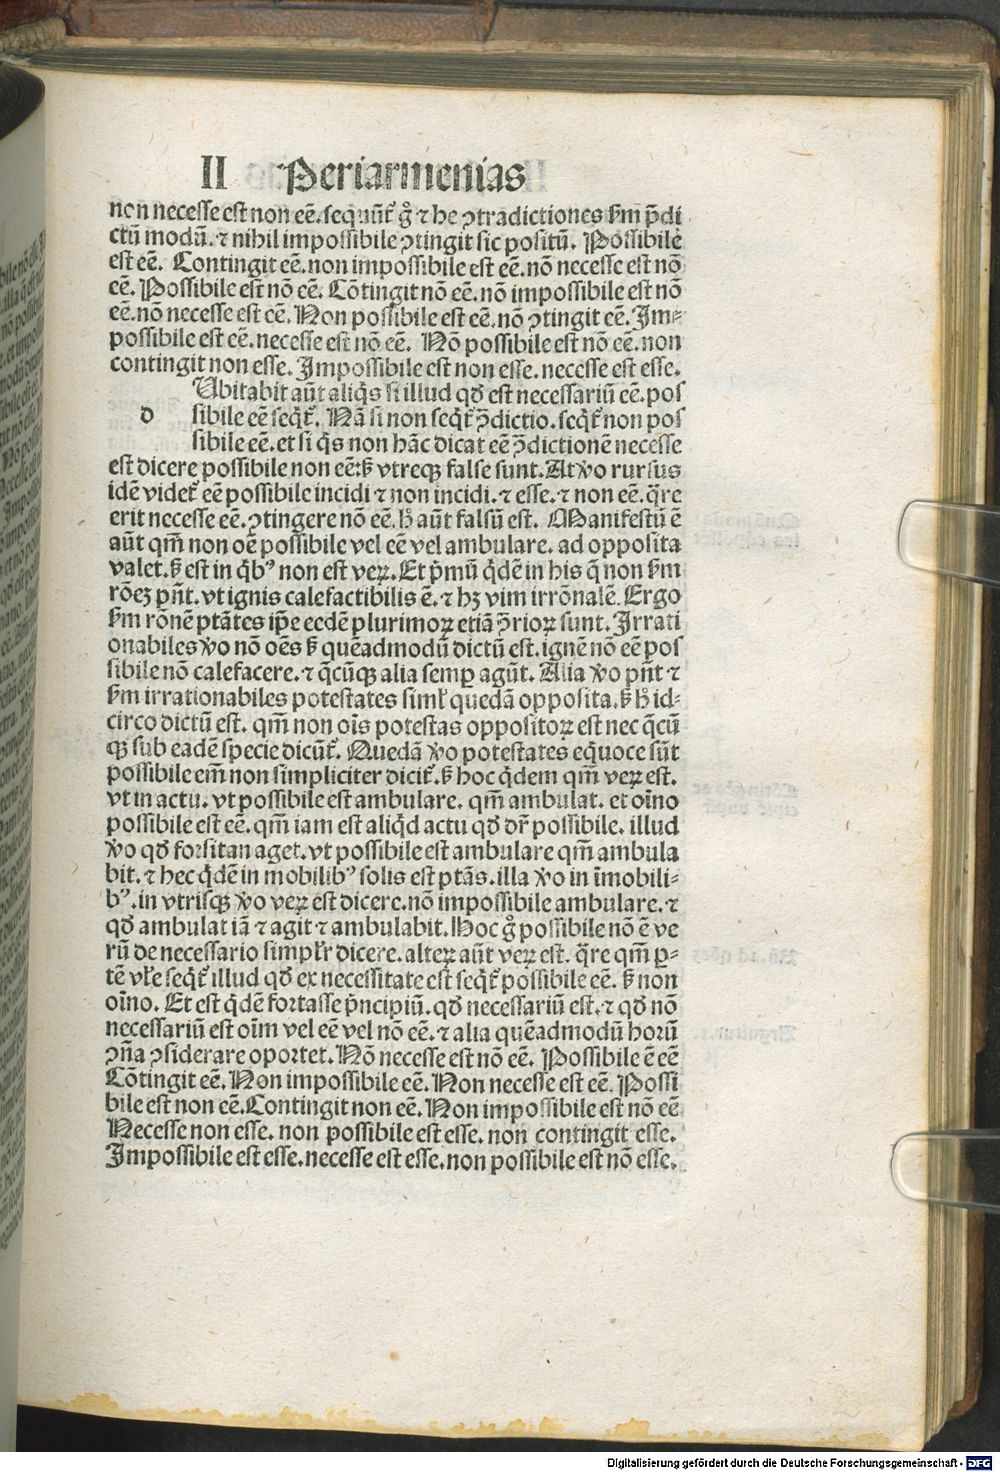 II Periarmenias
non necesse est non eē. sequūt᷑ gͦ ⁊ he ꝯtradictiones ẜm p̄di
ctū modū. ⁊ nihil impossibile ꝯtingit sic positū. Possibile
est eē. Contingit eē. non impossibile est eē. nō necesse est nō
eē. Possibile est nō eē. Cōtingit nō eē. nō impossibile est nō
eē. nō necesse est eē. Non possibile est eē. nō ꝯtingit eē. Im⸗
possibile est eē. necesse est nō eē. Nō possibile est nō eē. non
contingit non esse. Impossibile est non esse. necesse est esse.
Ubitabit aūt aliq̇s si illud qd̓ est necessariū eē. pos
d sibile eē seq̇t᷑. Nā si non seq̇t᷑ ꝯ̄dictio. seq̇t᷑ non pos
sibile eē. et si q̇s non hāc dicat eē ꝯ̄dictionē necesse
est dicere possibile non eē: ꝫ vtreqꝫ false sunt. At v̓o rursus
idē videt᷑ eē possibile incidi ⁊ non incidi. ⁊ esse. ⁊ non eē. q̄re
erit necesse eē. ꝯtingere nō eē. h̓ aūt falsū est. Manifestū ē
aūt qm̄ non oē possibile vel eē vel ambulare. ad opposita
valet. ꝫ est in q̇bꝰ non est veꝝ. Et p̓mū q̇dē in his q̄ non ẜm
rōeꝫ p̄nt. vt ignis calefactibilis ē. ⁊ hꝫ vim irrōnalē. Ergo
ẜm rōnē ptātes ip̄e eedē plurimoꝝ etiā ꝯ̄rioꝝ sunt. Irrati
onabiles v̓o nō oēs ꝫ quēadmodū dictū est. ignē nō eē pos
sibile nō calefacere. ⁊ q̄cūqꝫ alia semꝑ agūt. Alia v̓o p̄nt ⁊
ẜm irrationabiles potestates siml̓ quedā opposita. ꝫ h̓ id⸗
circo dictū est. qm̄ non oīs potestas oppositoꝝ est nec q̄cū
qꝫ sub eadē specie dicūt᷑. Quedā v̓o potestates eq̇uoce sūt
possibile em̄ non simpliciter dicit᷑. ꝫ hoc q̇dem qm̄ veꝝ est.
vt in actu. vt possibile est ambulare. qm̄ ambulat. et oīno
possibile est eē. qm̄ iam est aliq̇d actu qd̓ dr̄ possibile. illud
v̓o qd̓ forsitan aget. vt possibile est ambulare qm̄ ambula
bit. ⁊ hec q̇dē in mobilibꝰ solis est ptās. illa v̓o in īmobili⸗
bꝰ. in vtrisqꝫ v̓o veꝝ est dicere. nō impossibile ambulare. ⁊
qd̓ ambulat iā ⁊ agit ⁊ ambulabit. Hoc gͦ possibile nō ē ve
rū de necessario simpl̓r dicere. alteꝝ aūt veꝝ est. q̄re qm̄ ꝑ⸗
tē vl̓e seq̇t᷑ illud qd̓ ex necessitate est seq̇t᷑ possibile eē. ꝫ non
oīno. Et est q̇dē fortasse p̓ncipiū. qd̓ necessariū est. ⁊ qd̓ nō
necessariū est oīm vel eē vel nō eē. ⁊ alia quēadmodū horū
ꝯn̄a ꝯsiderare oportet. Nō necesse est nō eē. Possibile ē eē
Cōtingit eē. Non impossibile eē. Non necesse est eē. Possi
bile est non eē. Contingit non eē. Non impossibile est nō eē
Necesse non esse. non possibile est esse. non contingit esse.
Impossibile est esse. necesse est esse. non possibile est nō esse.
Digitalisierung gefördert durch die Deutsche Forschungsgemeinschaft - DFG